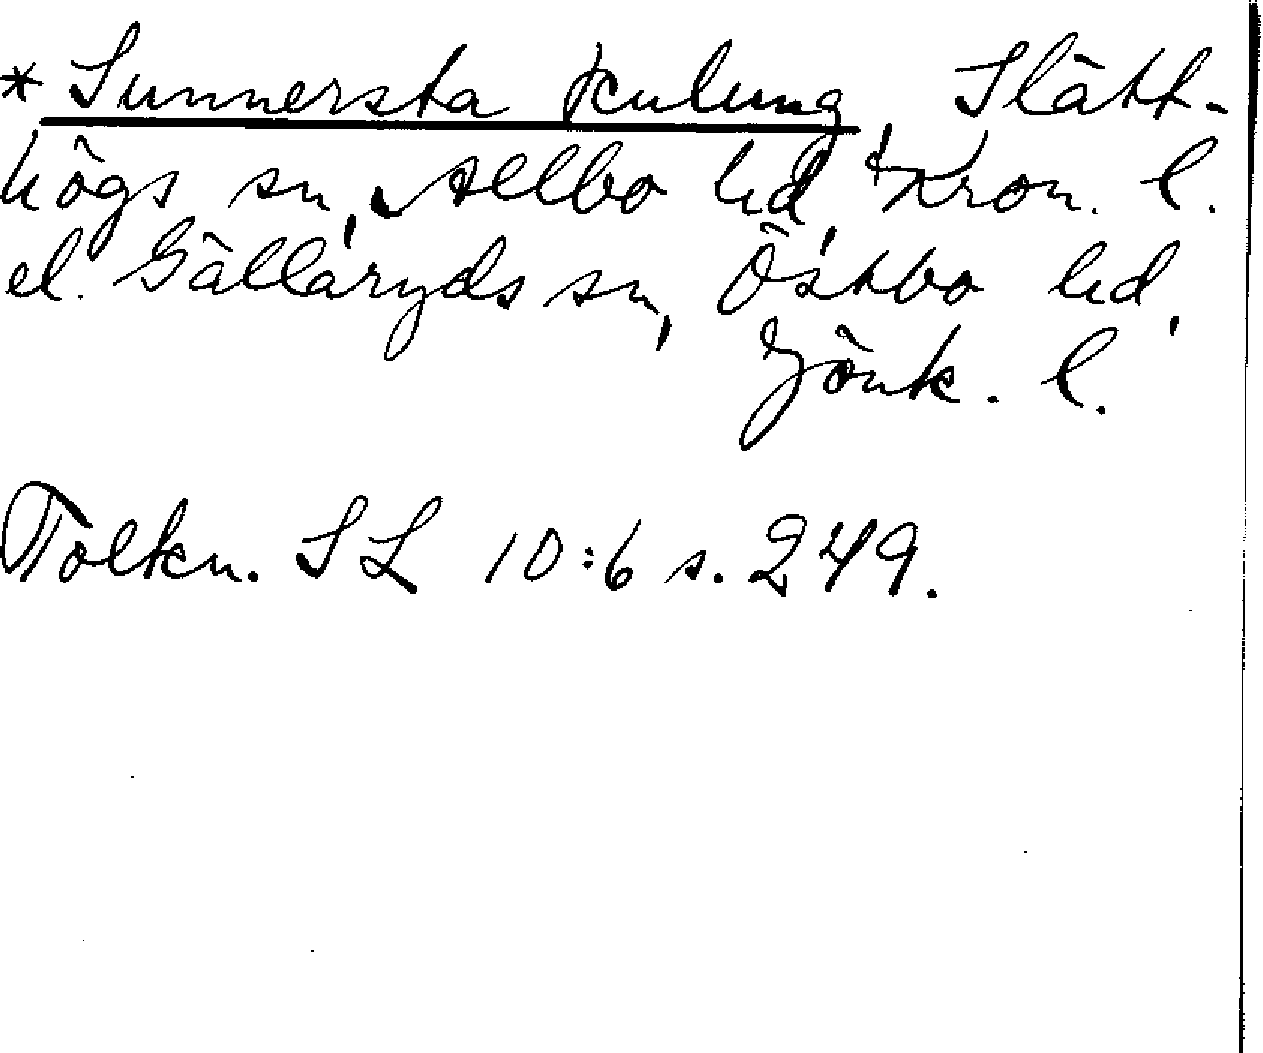 * Sunnersta kulung, Slätt-
högs sn, Allbo hd, Kron. l.
el. Gällaryds sn, Östbo hd,
Jönk. l.
Tolkn. SL 10:6 s. 249.